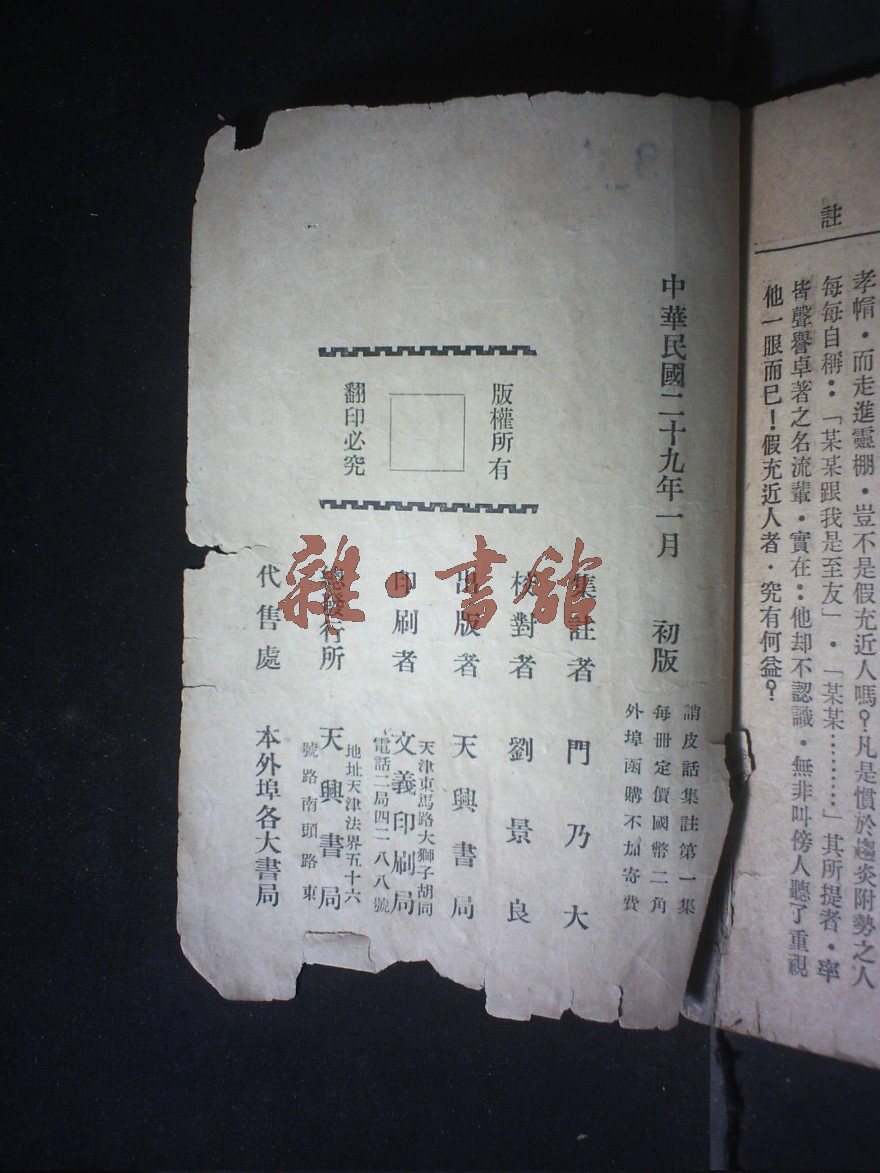 註
孝帽．而走進靈棚．豈不是假充近人嗎？凡是慣於趨炎附勢之人
每每自稱：「某某跟我是至友」．「某某………」其所提者．率
皆聲譽卓著之名流輩．實在：他却不認識．無非叫傍人聽了重視
他一眼而已！假充近人者．究有何益？
中華民國二十九年一月　初版
誚皮話集註第一集
每冊定價國幣二角
外埠函購不加寄費
集註者　門乃大
校對者　劉景良
出版者　天興書局
印刷者　文義印刷局
天津東馬路大獅子胡同
電話二局四二八八號
總發行所　天興書局
地址天津法界五十六
號路南頭路東
代售處　本外埠各大書局
版權所有
翻印必究
雜·書館